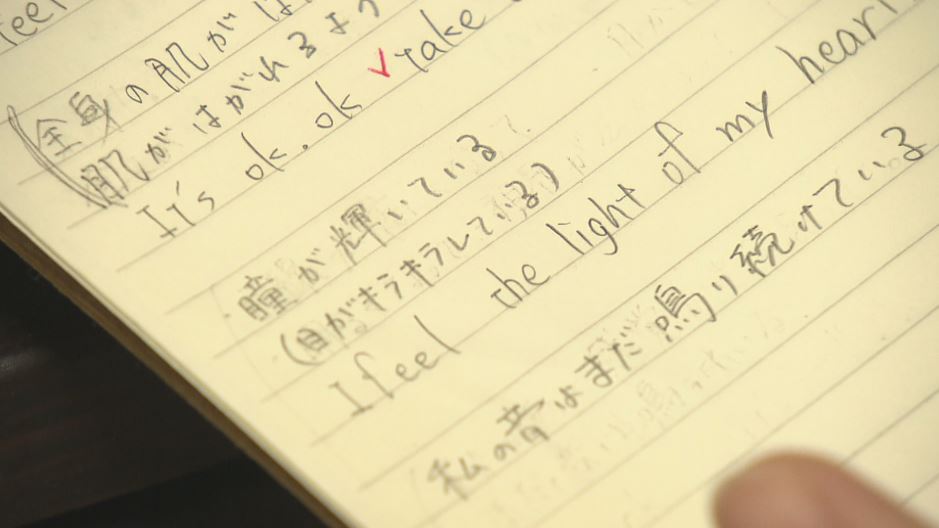 feel
全身の肌がは
(肌がはがれるよう
It's ok. ok ✓take
瞳が輝いている
(目がキラキラしている)
I feel the light of my heart
私の音はまだ鳴り続けている